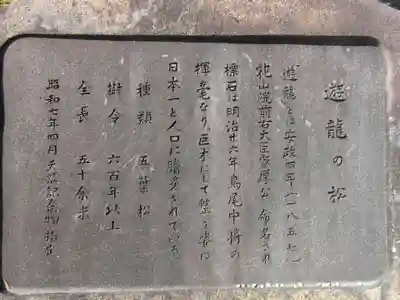 遊龍の松
遊龍とは安政四年(一八五七)
花山院前右大臣家厚公命名され
標石は明治廿六年鳥尾中将の
揮毫なり。巨木にして
日本一と人口に膾炙されている
種類 五葉松
樹令 六百年以上
全長 五十余米
昭和七年四月天然記念物指定